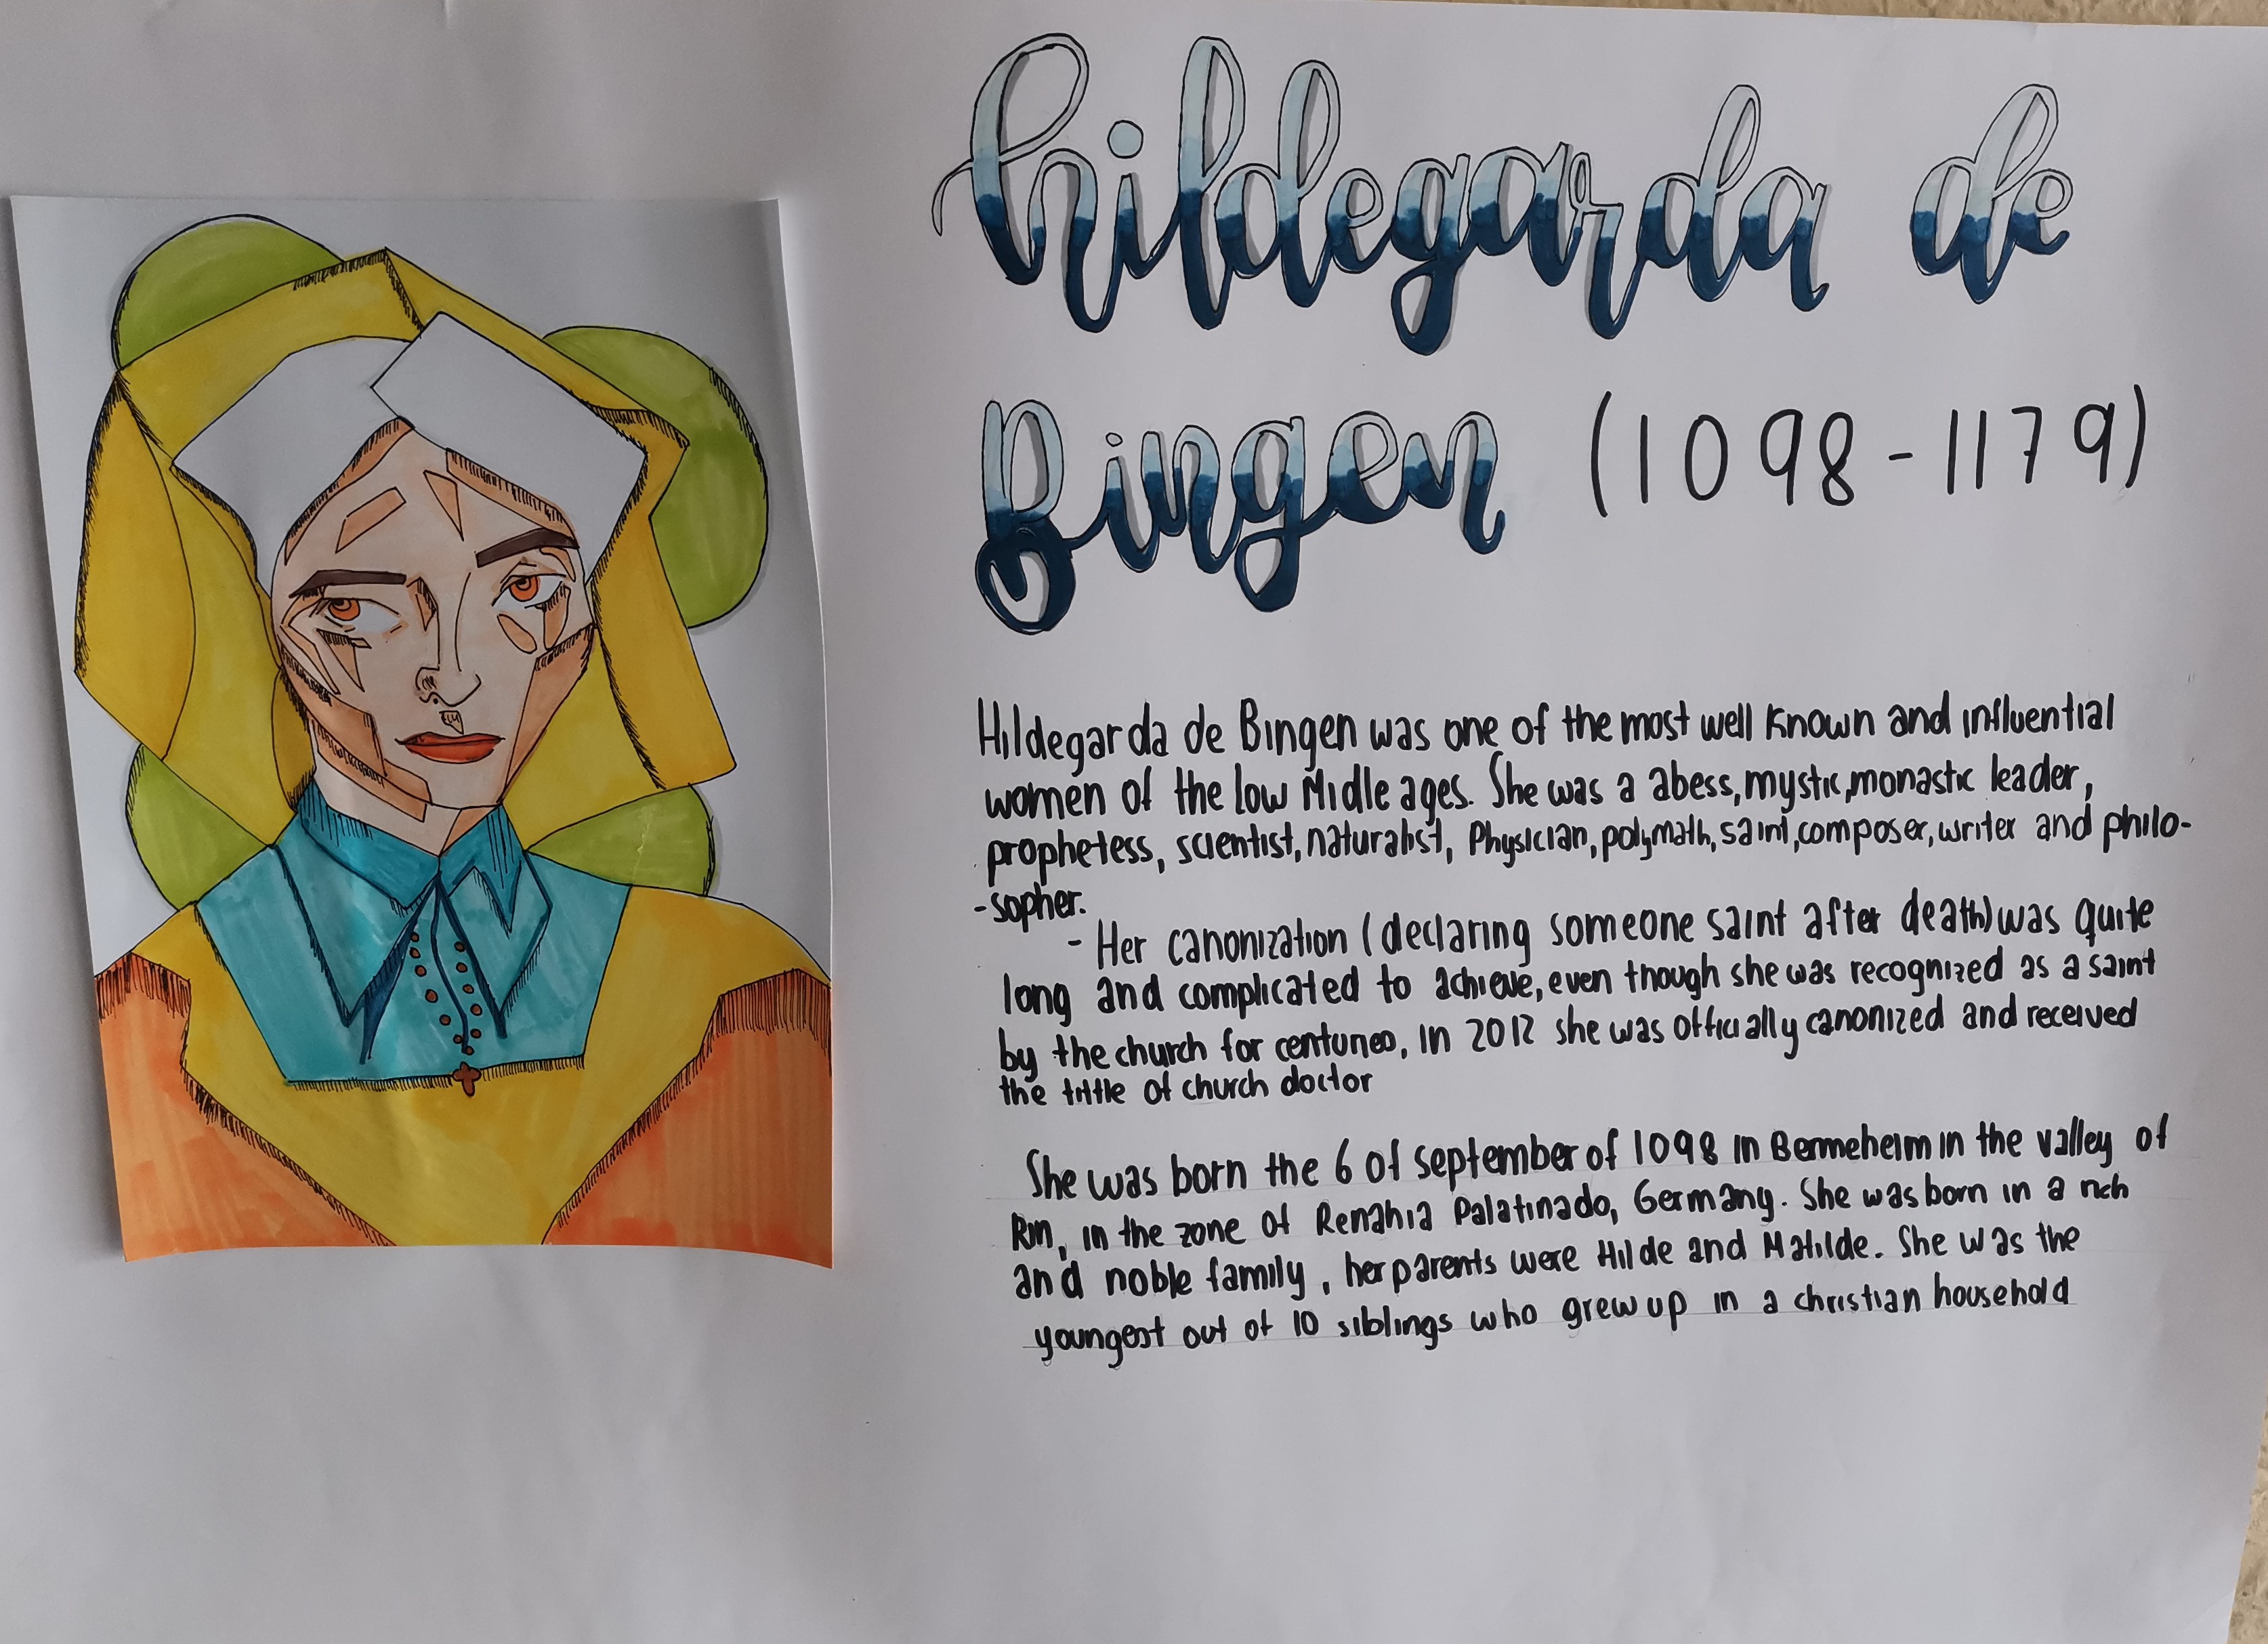 hildegarda de
Bingen (1098-1179)
Hildegarda de Bingen was one of the most well known and influential
women of the low Midle ages. She was a abess, mystic, monastic leader,
prophetess, scientist, naturalist, Physician, polymath, saint, composer, writer and philo-
-sopher.
- Her canonization (declaring someone saint after death) was quite
long and complicated to achieve, even though she was recognized as a saint
by the church for centuries, in 2012 she was officially canonized and received
the tittle of church doctor
She was born the 6 of september of 1098 in Bermeheim in the valley of
Rin, in the zone of Renahia Palatinado, Germany. She was born in a rich
and noble family, her parents were Hilde and Matilde. She was the
youngest out of 10 siblings who grew up in a christian household